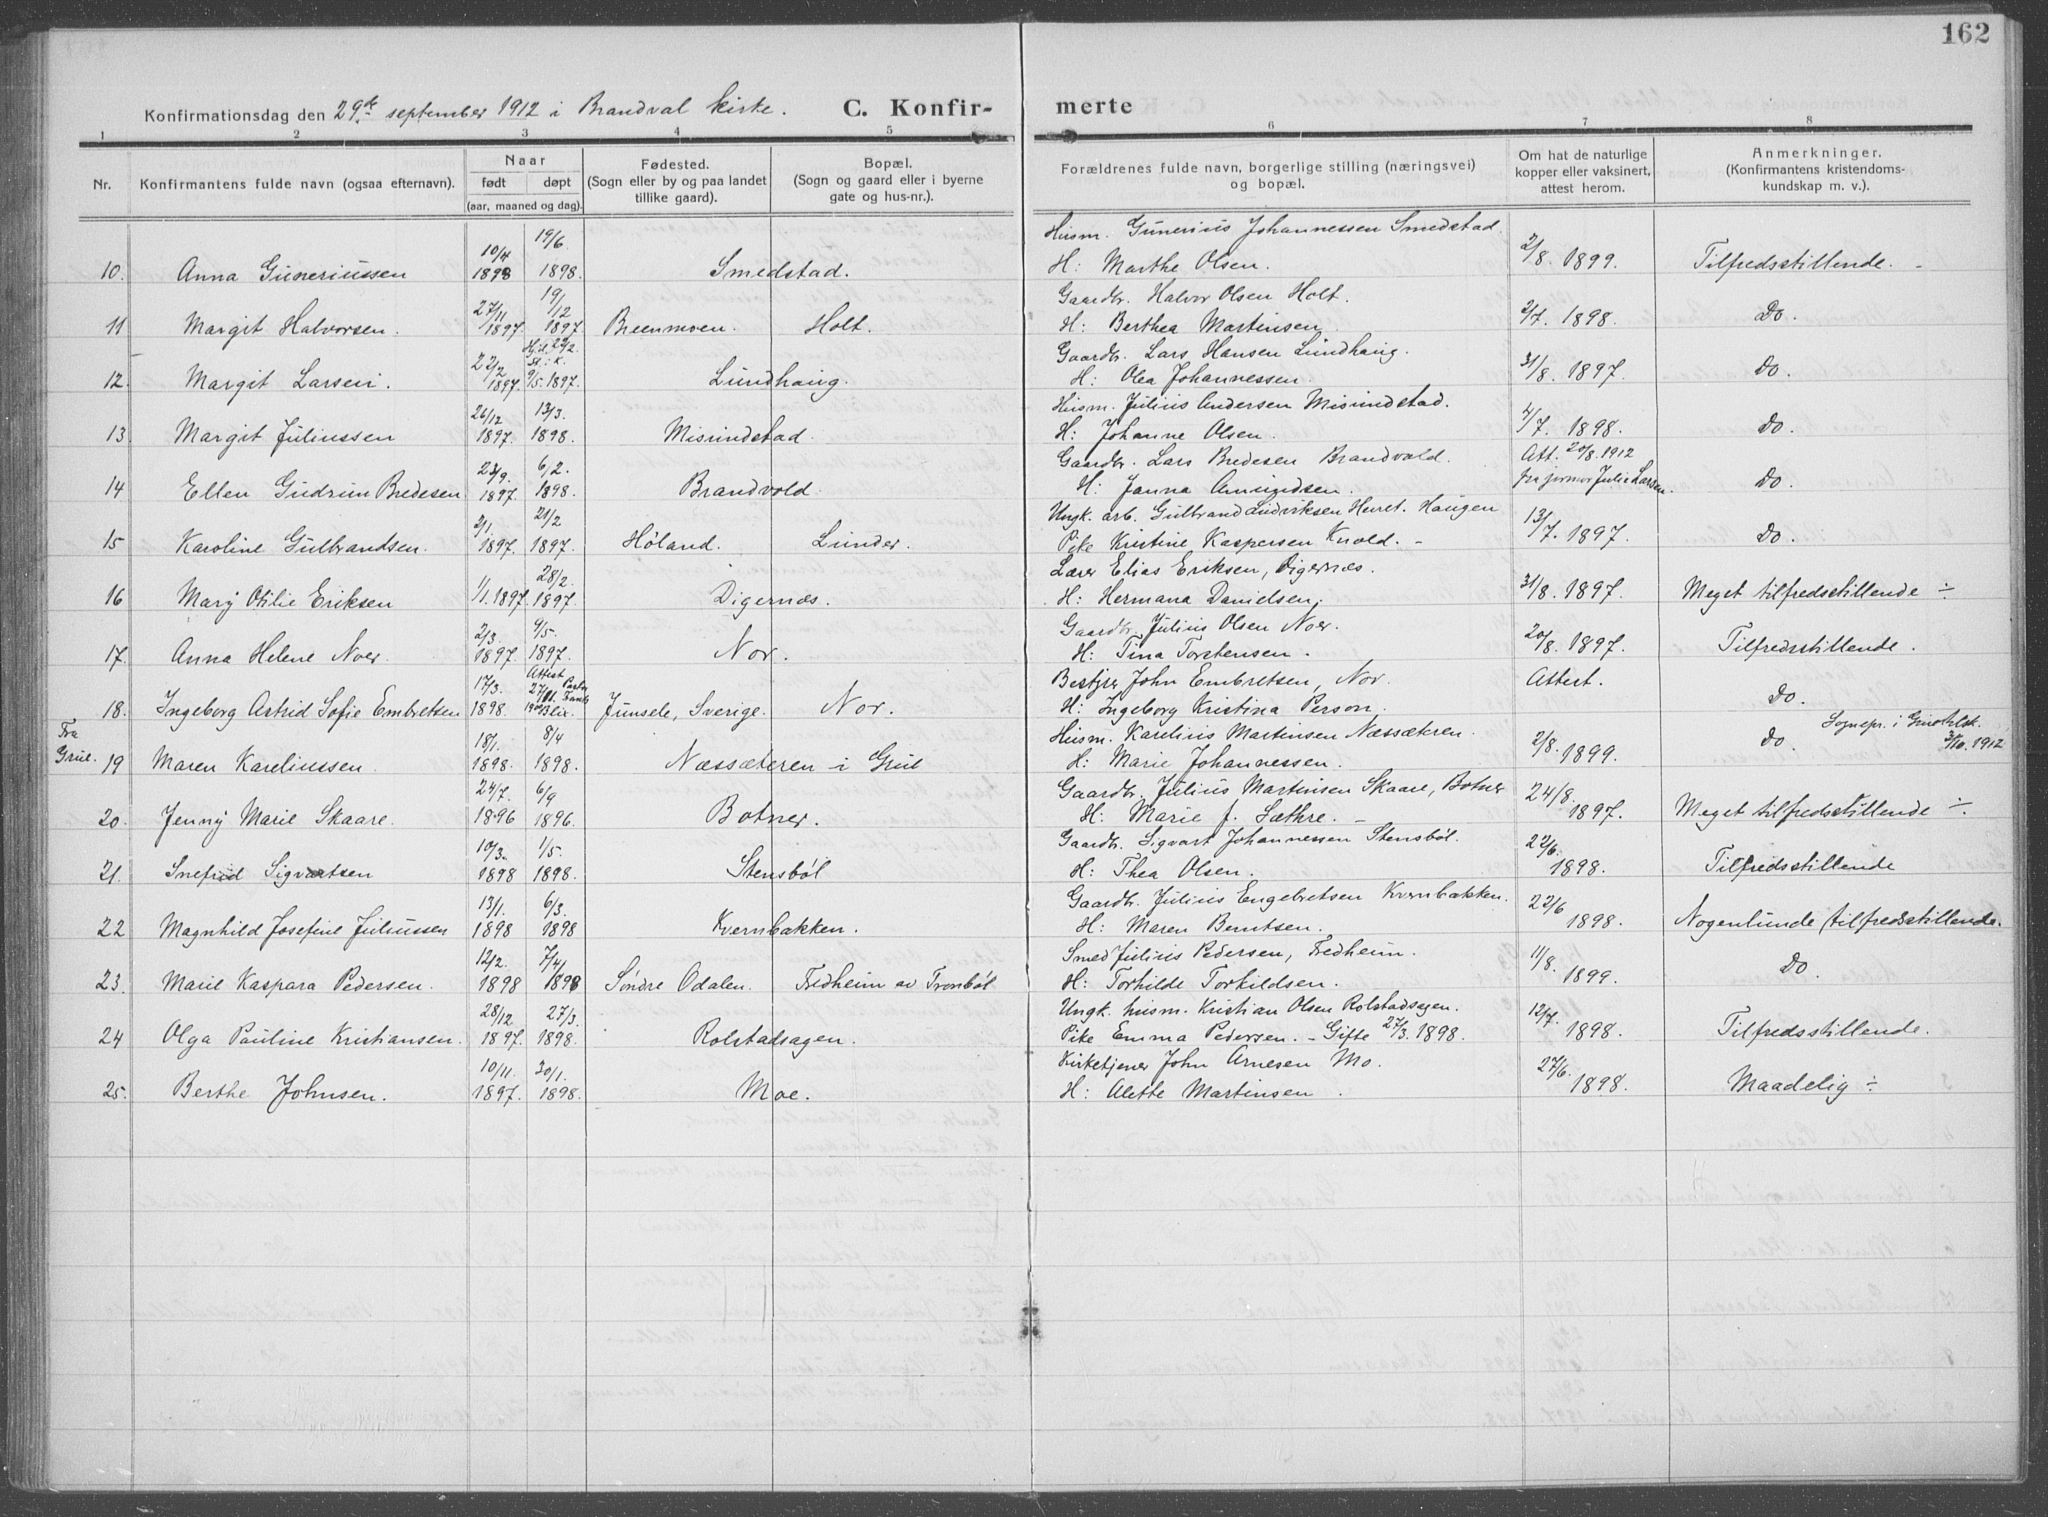 162
Konfirmationsdag den 29de september 1912 i Brandval kirke. C. Konfir- merte
1 2 3 4 5 6 7 8
Nr. Konfirmantens fulde navn (ogsaa efternavn). Naar født døpt (aar, maaned og dag). Fødested. (Sogn eller by og paa landet tillike gaard). Bopæl. (Sogn og gaard eller i byerne gate og hus-nr.). Forældrenes fulde navn, borgerlige stilling (næringsvei) og bopæl. Om hat de naturlige kopper eller vaksinert, attest herom. Anmerkninger. (Konfirmantens kristendoms- kundskap m. v.).
Husm. Gunerius Johannessen Smedstad.
10. Anna Guneriussen 10/4 1898 19/6 1898. Smedstad. H: Marthe Olsen. 2/8 1899. Tilfredsstillende. -
Gaardbr. Halvor Olsen Holt.
11 Margit Halvorsen. 27/11 1897. 19/12 1897. Breenmoen. Holt. H: Berthea Martinsen 2/7. 1898. Do.
Gaardbr. Lars Hansen Lundhaug.
12. Margit Larsen. 22/2 1897. Hj.d. 22/2. st. i K. 9/5. 1897. Lundhaug. H: Olea Johannessen. 31/8. 1897. Do.
Husm. Julius Andersen Misundstad.
13. Margit Juliussen 26/12 1897. 13/3. 1898. Misundstad. H: Johanne Olsen. 4/7. 1898. Do.
Gaardbr. Lars Bredesen Brandvold. Att. 20/8. 1912
14 Ellen Gudrun Bredesen 23/9. 1897. 6/2. 1898. Brandvold. H: Janna Amundsen. fra jormor Julie Larsen. Do.
Ungk. arb. Gulbrand Ludviksen Hevret. Haugen
15 Karoline Gulbrandsen. 2/1. 1897. 21/2 1897. Høland. Lunder. Pike Kristine Kaspersen Knold. - 13/7. 1897. Do.
Lærer Elias Eriksen, Digernæs.
16 Mary Otilie Eriksen 1/1. 1897. 28/2. 1897. Digernæs. H: Hermana Danielsen. 31/8. 1897. Meget tilfredsstillende ÷
Gaardbr. Julius Olsen Noer.
17. Anna Helene Noer. 2/3. 1897. 9/5. 1897. Nor. H: Tina Torstensen. 20/8. 1897. Tilfredsstillende.
Bestyrer John Embretsen, Nor. Attest.
18. Ingeborg Astrid Sofie Embretsen 17/3. 1898. Attest Pastor Blix. Junsele, Sverige. Nor. H: Ingeborg Kristina Person. Do.
Fra Grue. Husm. Karelius Martinsen Næssæteren. Sognepr. i Grue 3/10. 1912
19 Maren Kareliussen. 18/1. 1898. 8/4 1898. Næssæteren i Grue H: Marie Johannessen. 2/8. 1899. Do.
Gaardbr. Julius Martinsen Skaare, Botner
20. Jenny Marie Skaare. 24/7. 1896 6/9 1896. Botner. H: Marie f. Sæthre. - 24/8. 1897. Meget tilfredsstillende ÷.
Gaardbr. Sigvart Johannessen Stensbøl.
21. Snefrid Sigvartsen 10/3. 1898 1/5. 1898. Stensbøl H: Thea Olsen. 22/6. 1898. Tilfredsstillende
Gaardbr. Julius Engebretsen Kvernbækken.
22 Magnhild Josefine Juliussen 13/1. 1898 6/3. 1898 Kvernbækken. H: Maren Berntsen. 22/6 1898. Nogenlunde tilfredsstillende.
Smed Julius Pedersen, Fredheim.
23. Marie Kaspara Pedersen. 12/2. 1898 7/4 1898 Søndre Odalen. Fredheim av Tronbøl H: Torhilde Torkildsen. 11/8. 1899. Do.
Ungk. husm. Kristian Olsen Rolstadsagen.
24 Olga Pauline Kristiansen. 28/12 1897. 27/3. 1898. Rolstadsagen. Pike Emma Pedersen. - Gifte 27/3. 1898. 12/7. 1898. Tilfredsstillende.
Kirketjener John Arnesen Mo.
25. Berthe Johnsen. 10/11. 1897. 30/1. 1898. Moe. H: Alette Martinsen. 27/6. 1898. Maadelig ÷